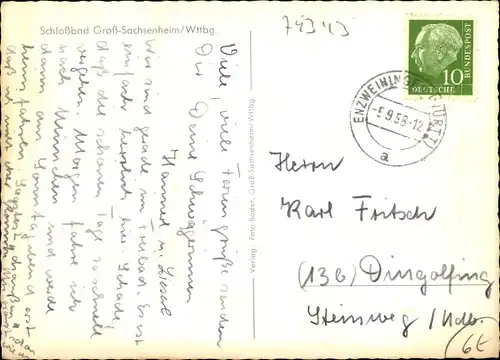 Schloßbad Groß-Sachsenheim/Wttbg.
74343
DEUTSCHE
BUNDESPOST
10
ENZWEIHINGEN (WÜRTT)
-5.9.58-12
a
Viele, viele Feriengrüße senden
Dir Deine Schwägerinnen
Hannel u. Liesel
Wir sind gerade im Freibad. Es ist
einfach herrlich hier. Schade,
daß die schönen Tage so schnell
vergehen. Morgen fahre ich
nach München und werde
dann am Sonntag abend erst
heim fahren.
daß ist
Verlag: Foto-Bader, Groß-Sachsenheim/Wttbg.
Herrn
Karl Fritsch
(13b) Dingolfing
Steinweg /Ndb.
6E